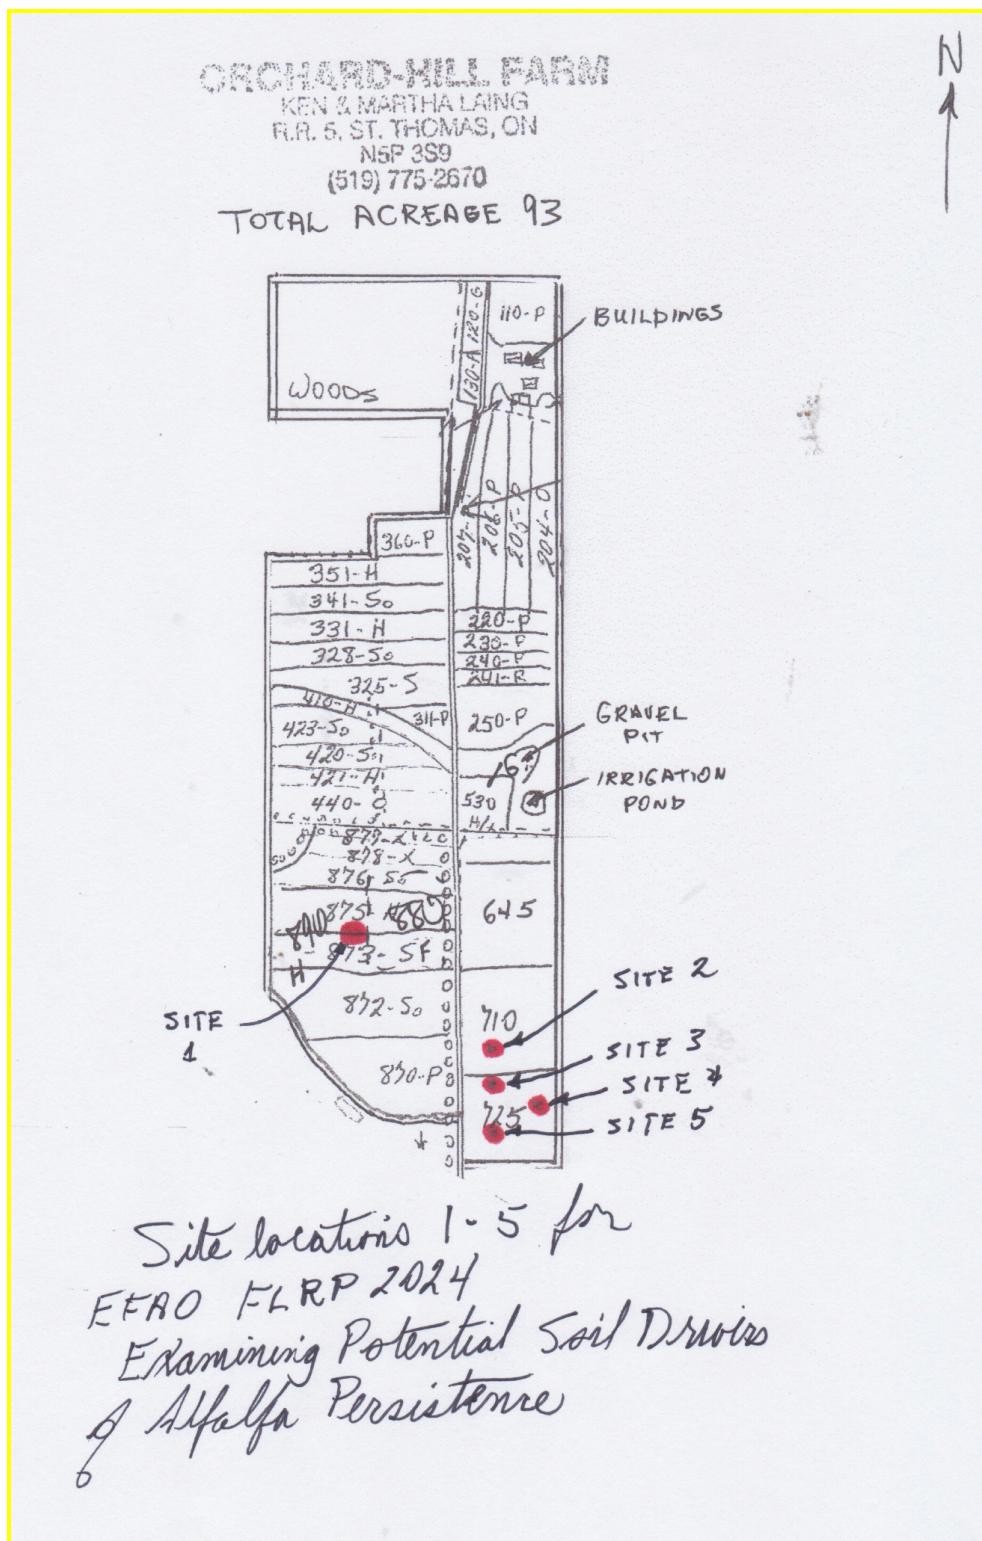 ORCHARD-HILL FARM
KEN & MARTHA LAING
R.R. 5, ST. THOMAS, ON
N5P 3S9
(519) 775-2670
TOTAL ACREAGE 93
N
110-P
BUILDINGS
120-G
130-A
WOODS
207-P
206-P
205-P
204-O
360-P
351-H
341-So
331-H
328-So
325-S
311-P
410-H
423-So
420-S
421-H
440-O
220-P
230-P
240-P
241-R
250-P
GRAVEL
PIT
167
IRRIGATION
POND
530
H/L
877-X
878-X
876-SS
875
880
890
H
873-SF
872-So
870-P
645
710
725
SITE
1
SITE 2
SITE 3
SITE *
SITE 5
*
Site locations 1-5 for
EFAO FLRP 2024
Examining Potential Soil Drivers
of Alfalfa Persistence